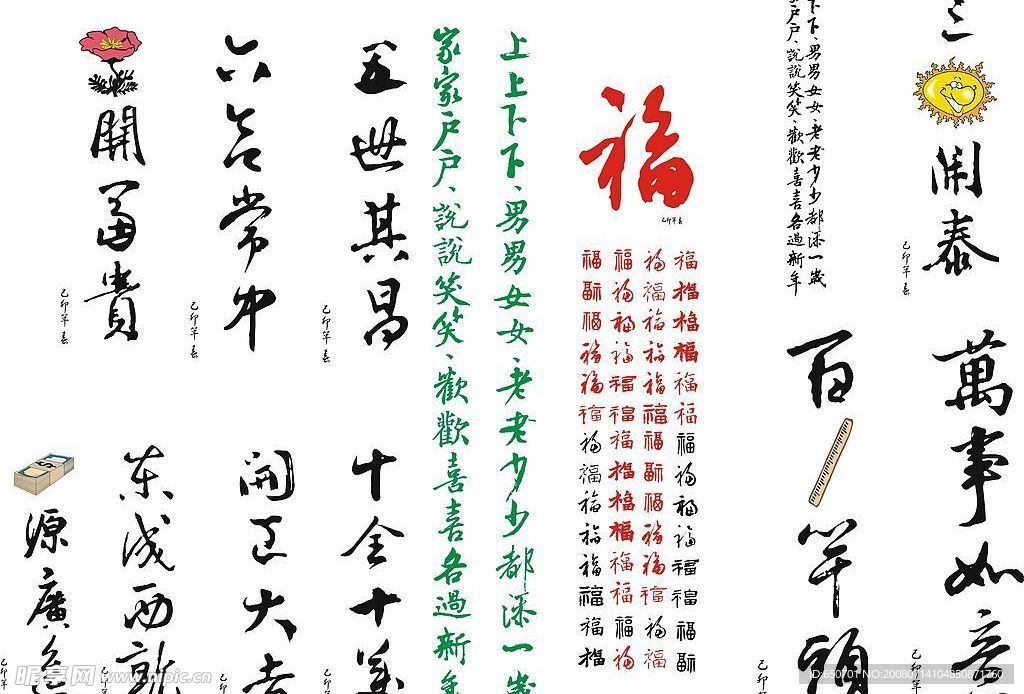 三
開泰
己卯年春
萬事如意
上上下下、男男女女、老老少少都添一歲
家家戶戶、說說笑笑、歡歡喜喜各過新年
百
竿頭
己卯
福
己卯年春
福福福福
福福福福
福福福福
福福福福
福福福福
福福福福
福福福福
福福福福
福福福福
福福福福
福福福福
福福福福
福福福福
福福福福
上上下下、男男女女、老老少少都添一歲
家家戶戶、說說笑笑、歡歡喜喜各過新年
五世其昌
己卯年春
六合常中
己卯年春
開富貴
己卯年春
十全十美
己卯年
開工大吉
己卯年
東成西就
己卯
源廣進
己卯
昵享网 www.nipic.cn
ID:650701 NO:20080714104850871760